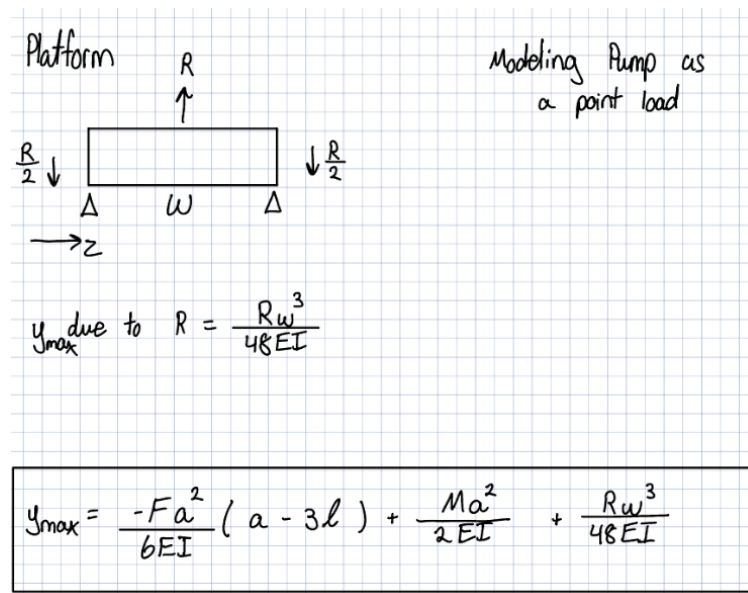 Platform
Modeling Pump as
a point load
R
R/2
R/2
W
z
y_max due to R = Rw^3/48EI
y_max = -Fa^2/6EI (a - 3l) + Ma^2/2EI + Rw^3/48EI